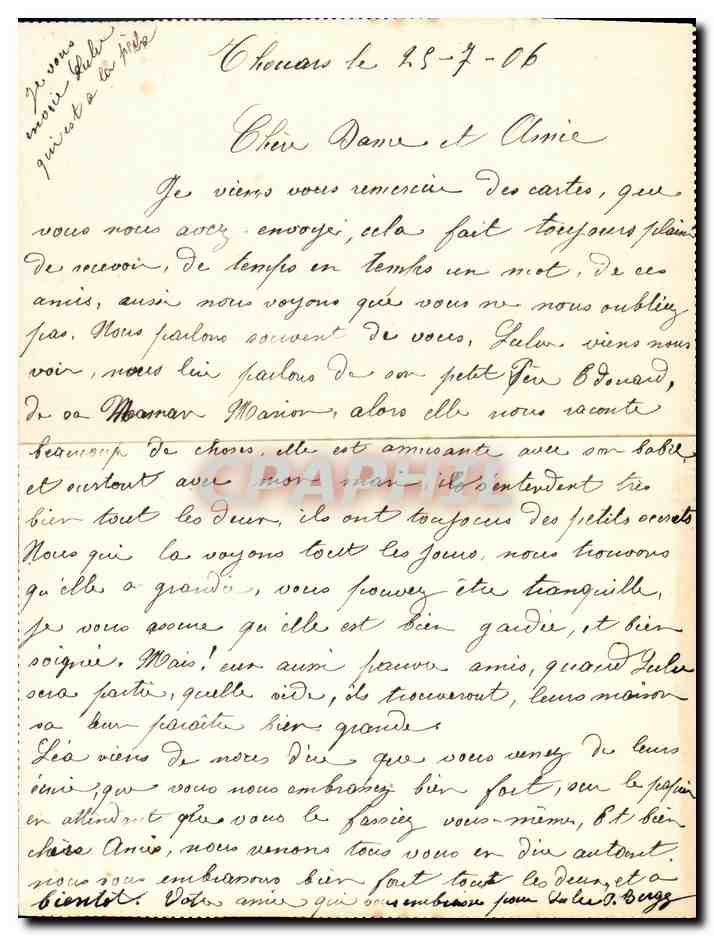 Je vous
envoie Lulu
qui est a la pêche
Thouars le 25-7-06
Chère Dame et Amie
Je viens vous remercier des cartes, que
vous nous avez envoyé, cela fait toujours plaisir
de recevoir, de temps en temps un mot, de ces
amis, aussi nous voyons que vous ne nous oubliez
pas. Nous parlons souvent de vous, Lulu viens nous
voir, nous lui parlons de son petit Père Edouard,
de sa Maman Marion, alors elle nous raconte
beaucoup de choses, elle est amusante avec son babil,
et surtout avec mon mari, ils s'entendent très
bien tout les deux, ils ont toujours des petits secrets
Nous qui la voyons tout les jours, nous trouvons
qu'elle a grandie, vous pouvez être tranquille,
je vous assure qu'elle est bien gardée, et bien
soignée. Mais! eux aussi pauvre amis, quand Lulu
sera partie, quelle vide, ils trouveront, leurs maison
va leur paraître bien grande.
Léa viens de nous dire que vous venez de leurs
écrire, que vous nous embrassez bien fort, sur le papier
en attendant que vous le fassiez vous-même, Et bien
chers Amis, nous venons tous vous en dire autant.
nous vous embrassons bien fort tout les deux, et a
bientôt. Votre amie qui vous embrasse pour Lulu
CPAPHIL